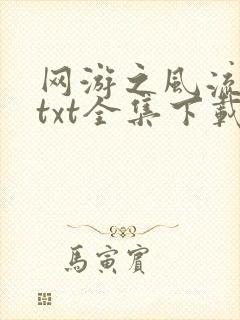 网游之风流
txt全集下载
馬寅賔